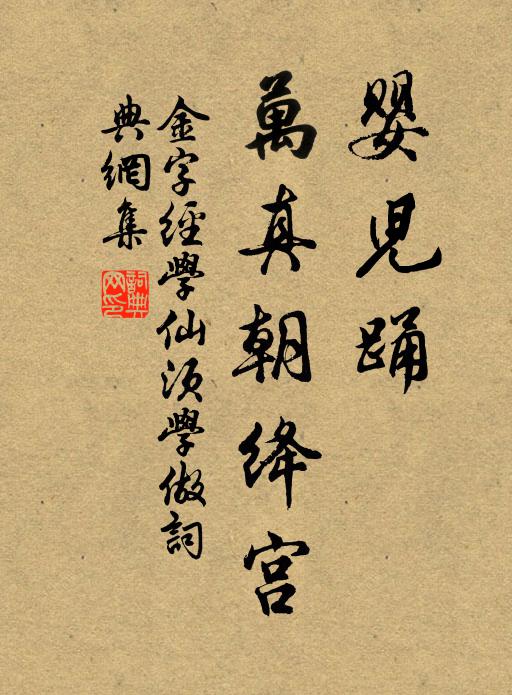 嬰児踊
萬真朝絳宮
金字經學仙須學做詞
典網集
詞典网印